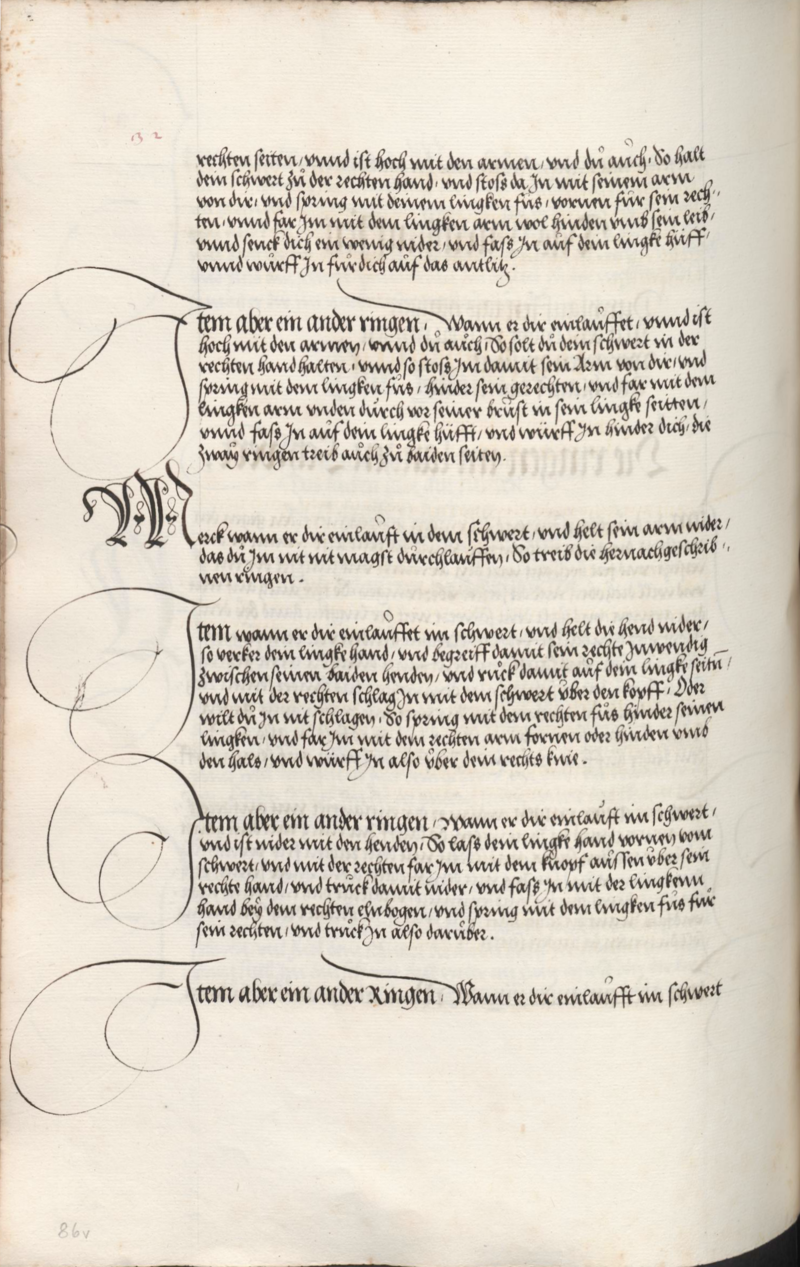 132
rechten seiten / vnnd ist hoch mit den armen / vnd dů auch / So halt
dein schwert zů der rechten hand / vnd stoss da In mit seinem arm
von dir / vnd spring mit deinem lingken fůs / vornen für sein rech-
ten / vnnd far Im mit dem lingken arm wol hinden vmb sein leib /
vnnd senck dich ein wenig nider / vnd fass In auf dein lingke hüff /
vnnd würff In für dich auf das antlitz .
Item aber ein ander ringen / Wann er dir einlauffet / vnnd ist
hoch mit den armen / vnnd dů auch / So solt dů dein schwert in der
rechten hand halten / vnnd so stoss Im damit sein Arm von dir / vnd
spring mit dem lingken fůs / hinder sein gerechten / vnd far mit dem
lingken arm vnden dürch vor seiner brüst in sein lingke seitten /
vnnd fass In auf dein lingke hüfft / vnd würff In hinder dich / die
zway ringen treib auch zů baiden seiten .
Merck wann er dir einlauft in dem schwert / vnd helt sein arm nider /
das dů Im nit nit magst dürchlauffen / So treib die hernachgeschrib-
nen ringen .
Item wann er dir einlauffet im schwert / vnd helt die hend nider /
so verker dein lingke hand / vnd begreiff damit sein rechte Inwendig
zwischen seinen baiden henden / vnd rück damit auf dein lingke seitn /
vnd mit der rechten schlag In mit dem schwert vber den kopff / Oder
wilt dů In nit schlagen / So spring mit dem rechten fůs hinder seinen
lingken / vnd far Im mit dem rechten arm fornen oder hinden vmb
den hals / vnd würff In also vber dein rechts knie .
Item aber ein ander ringen / Wann er dir einlauft im schwert /
vnd ist nider mit den henden / So lass dein lingke hand vornen vom
schwert / vnd mit der rechten far Im mit dem knopf aussen vber sein
rechte hand / vnd truck damit nider / vnd fass In mit der lingkenn
hand bey dem rechten elnbogen / vnd spring mit dem lingken fůs für
sein rechten / vnd truck In also darüber .
Item aber ein ander Ringen / Wann er dir einlaufft im schwert
86v